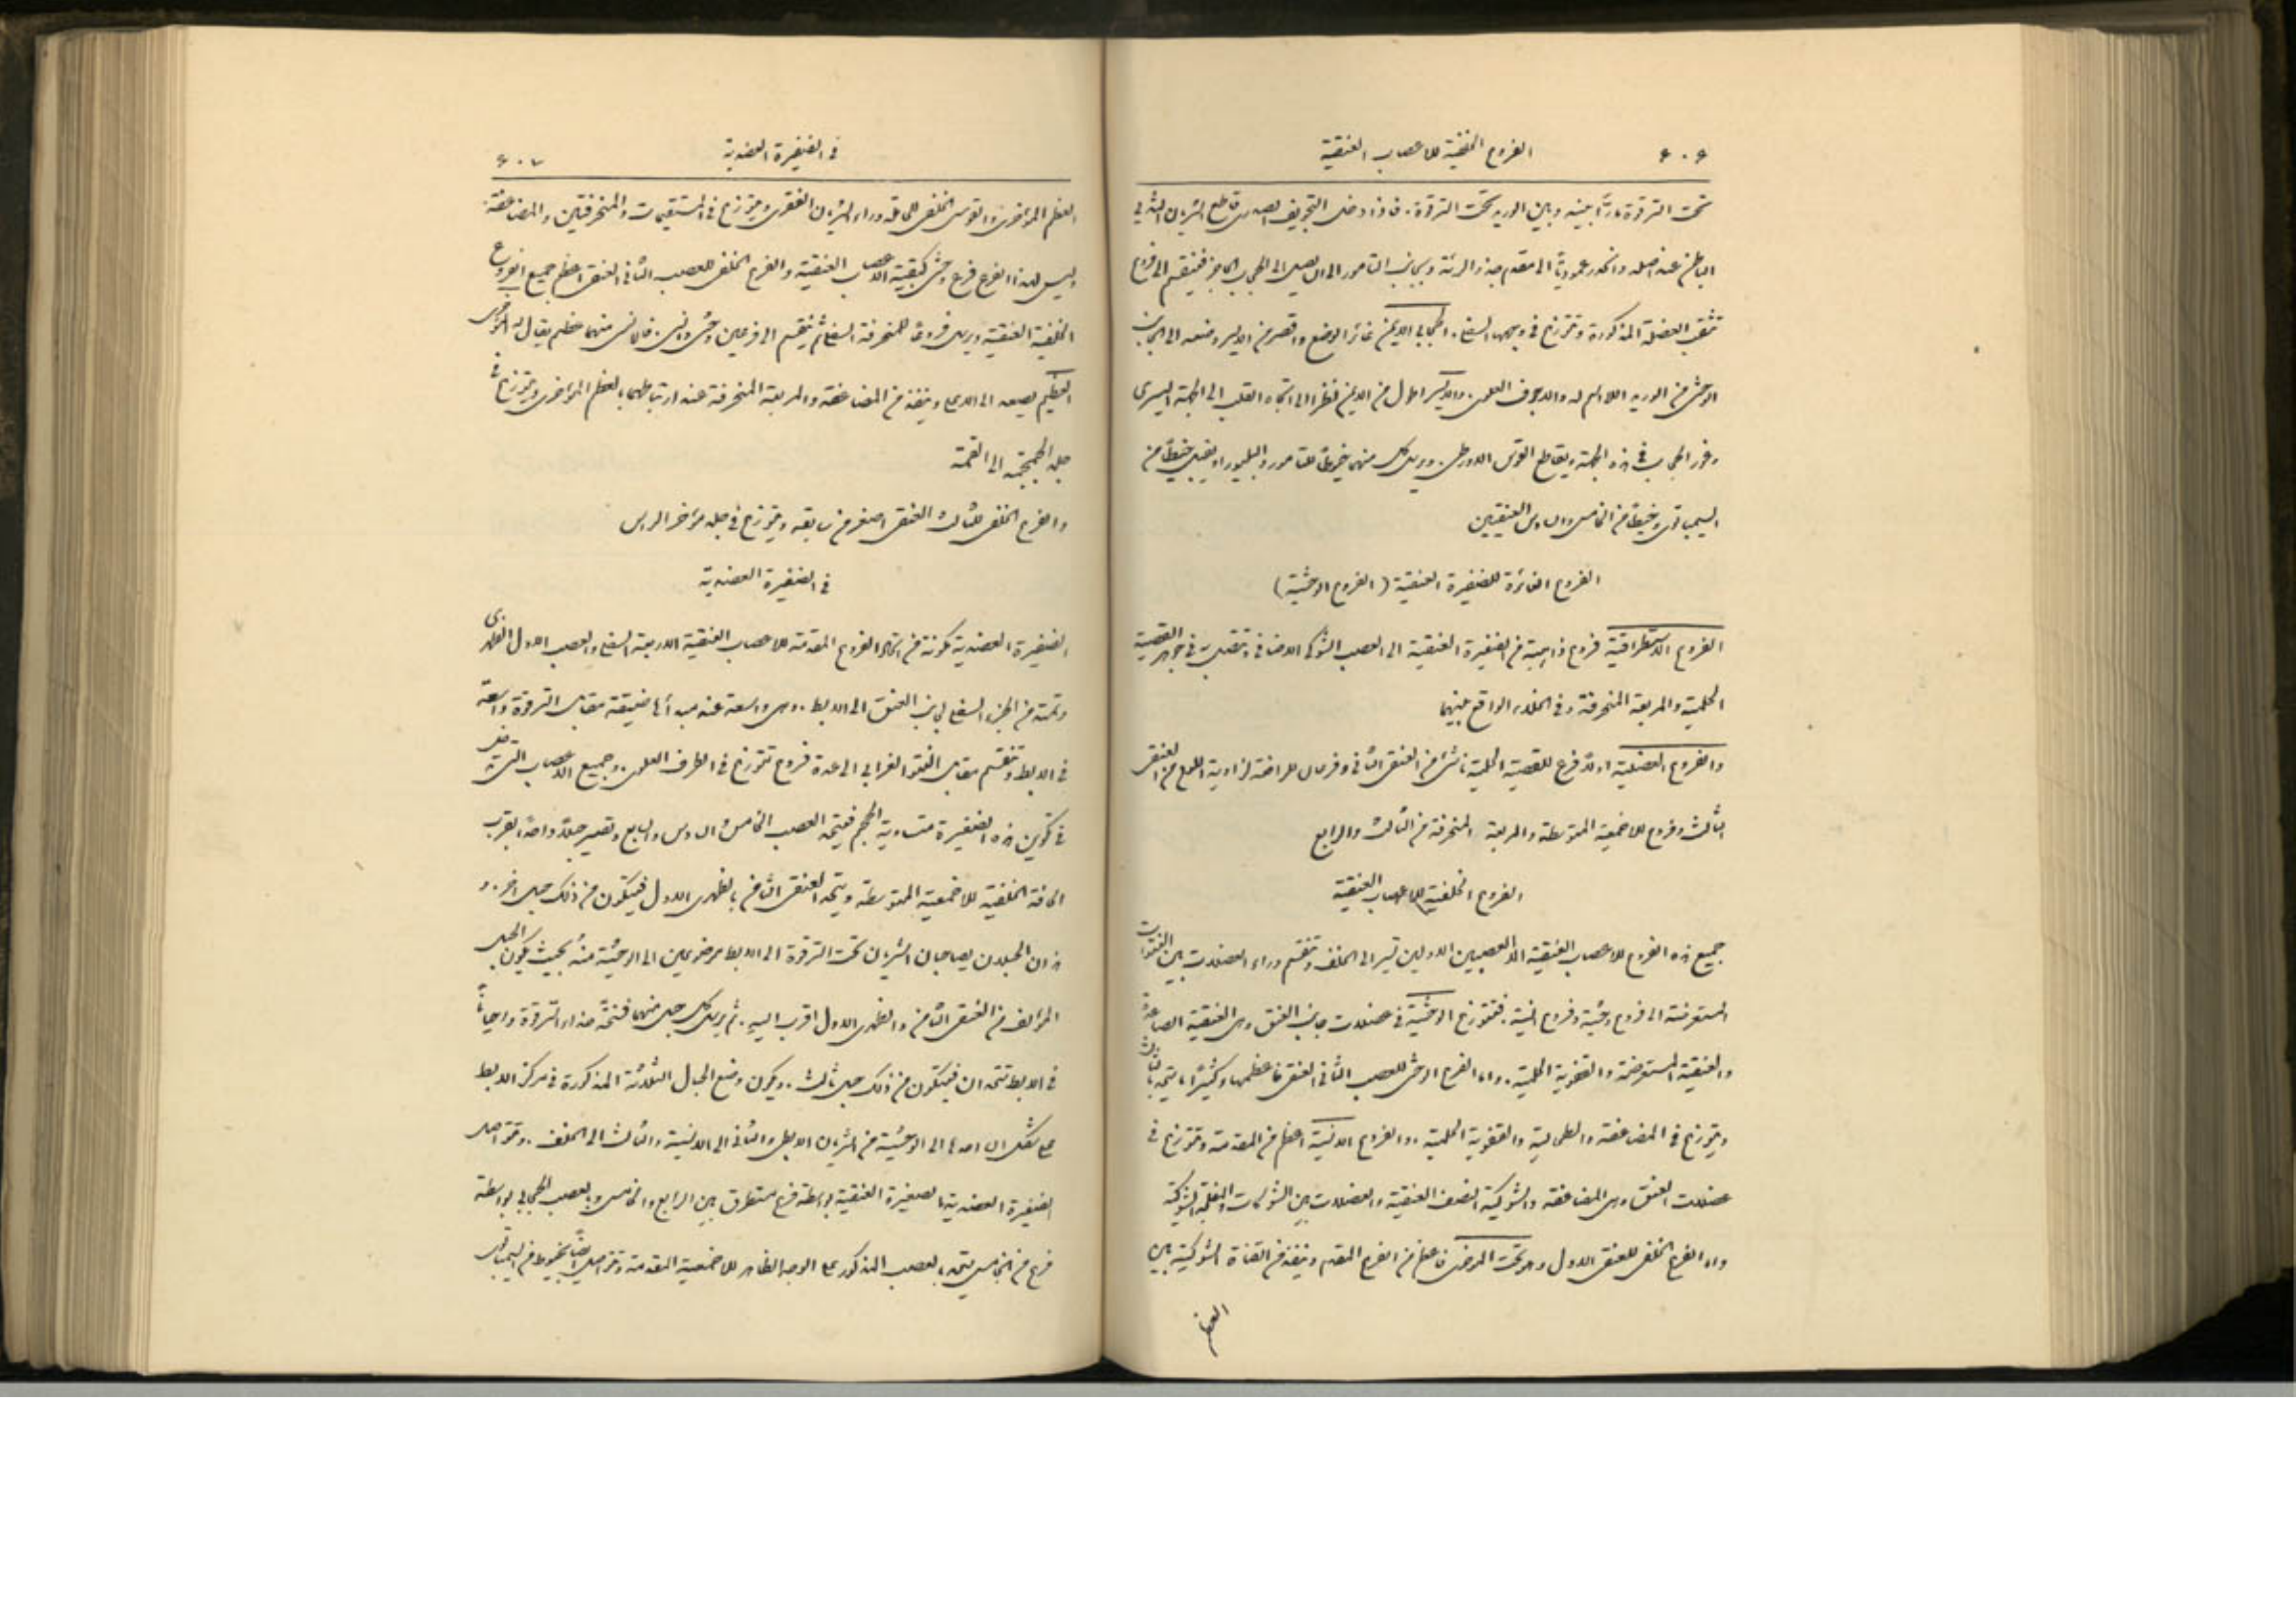 ٤٠٦ الفروع الخلفية للاعصاب العنقية
تحت الترقوة مارًّا بينه وبين الوريد تحت الترقوة. فاذا دخل التجويف الصدري قاطع الشريان الثديي
الباطن عند اصله وانحدر عموديًّا الى مقدم جذر الرئة وبجانب التامور الى ان يصل الى الحجاب الحاجز فينقسم الى فروع
تثقب العضلة المذكورة وتتوزع في وجهها السفلي. الحجابي الايمن غائر الوضع واقصر من الايسر وضعه الى الجانب
الوحشي من الوريد اللااسم له والاجوف العلوي. والايسر اطول من الايمن نظرا الى اتجاه القلب الى الجهة اليسرى
وغور الحجاب في هذه الجهة ويقاطع القوس الاورطي. ويرسل كل منهما خيوطًا للتامور والبليورا ويقبل خيطًا من
السيمباتوي وخيطًا من الخامس والسادس العنقيين
الفروع الغائرة للضفيرة العنقية (الفروع الوحشية)
الفروع الاستطراقية فروع ذاهبة من الضفيرة العنقية الى العصب الشوكي الاضافي وتتصل به في جوهر القصية
الحلمية والمربعة المنحرفة وفي الخلاء الواقع بينهما
والفروع العضلية اولاً فرع للقصية الحلمية ناشئ من العنقي الثاني وفرعان للرافعة لزاوية اللوح من العنقي
الثالث وفروع للاخمعية المتوسطة والمربعة المنحرفة من الثالث والرابع
الفروع الخلفية للاعصاب العنقية
جميع هذه الفروع للاعصاب العنقية الا العصبين الاولين تسير الى الخلف وتنقسم وراء العضلات بين النتوات
المستعرضة الى فروع وحشية وفروع انسية. فتتوزع الوحشية في عضلات جانب العنق وهي العنقية الصاعدة
والعنقية المستعرضة والقصوية الحلمية. واما الفرع الوحشي للعصب الثاني العنقي فاعظمها وكثيرًا ما يتحد بالثالث
ويتوزع في المضاعفة والطحالية والقصوية الحلمية. والفروع الانسية اعظم من المقدمة وتتوزع في
عضلات العنق وهي المضاعفة والشوكية النصف العنقية والعضلات بين الشوكات والمغلفة الشوكية
واما الفرع الخلفي للعنقي الاول وهو تحت المؤخري فاعظم من الفرع المقدم وينفذ من القناة الشوكية بين
العظم
في الضفيرة العضدية ٤٠٧
العظم المؤخري والقوس الخلفي للحاملة وراء الشريان الفقري ويتوزع في المستقيمات والمنحرفتين والمضاعفة.
وليس لهذا الفرع فرع وحشي كبقية الاعصاب العنقية والفرع الخلفي للعصب الثاني العنقي اعظم جميع الفروع
الخلفية العنقية ويرسل فروعًا للمنحرفة السفلى ثم ينقسم الى فرعين وحشي وانسي. فالانسي منهما عظيم يقال له المؤخري
العظيم يصعد الى الاعلى وينفذ من المضاعفة والمربعة المنحرفة عند ارتباطهما بالعظم المؤخري ويتوزع في
جلد الجمجمة الى القمة
والفرع الخلفي للثالث العنقي اصغر من سابقه ويتوزع في جلد مؤخر الراس
في الضفيرة العضدية
الضفيرة العضدية مكونة من اتحاد الفروع المقدمة للاعصاب العنقية الاربعة السفلى والعصب الاول الظهري
وتمتد من الجزء السفلي لجانب العنق الى الابط. وهي واسعة عند مبدأها ضيقة مقابل الترقوة واسعة
في الابط وتنقسم مقابل النتو الغرابي الى عدة فروع تتوزع في الطرف العلوي. وجميع الاعصاب التي تدخل
في تكوين هذه الضفيرة متساوية الحجم فيتحد العصب الخامس والسادس والسابع وتصير حبلاً واحدًا بقرب
الحافة الخلفية للاخمعية المتوسطة ويتحد العنقي الثامن بالظهري الاول فيتكون من ذلك حبل اخر. و
هذان الحبلان يصاحبان الشريان تحت الترقوة الى الابط موضوعين الى الوحشية منه بحيث يكون الحبل
المؤلف من العنقي الثامن والظهري الاول اقرب اليه. ثم يرسل كل حبل منهما فتحة حذاء الترقوة واحيانًا
في الابط تتحدان فيتكون من ذلك حبل ثالث. ويكون وضع الحبال الثلاثة المذكورة في مركز الابط
على شكل ان احدها الى الوحشية من الشريان الابطي والثاني الى الانسية والثالث الى الخلف. وتتواصل
الضفيرة العضدية بالضفيرة العنقية بواسطة فرع مستطرق بين الرابع والخامس وبالعصب الحجابي بواسطة
فرع من الخامس يتحد بالعصب المذكور على الوجه الظاهر للاخمعية المقدمة وتتواصل ايضًا بخيوط من السيمباتوي